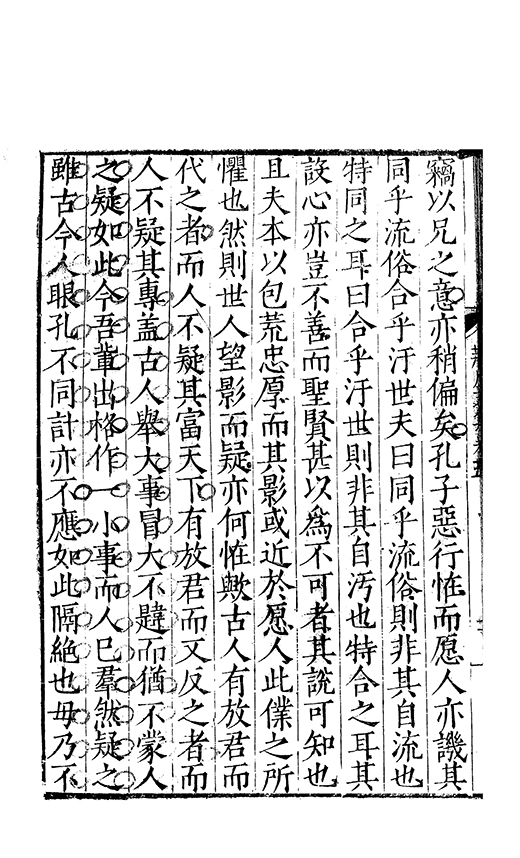 竊以兄之意亦稍偏矣孔子惡行怪而愿人亦譏其
同乎流俗合乎汙世夫曰同乎流俗則非其自流也
特同之耳曰合乎汙世則非其自汚也特合之耳其
設心亦豈不善而聖賢甚以為不可者其說可知也
且夫本以包荒忠厚而其影或近於愿人此僕之所
懼也然則世人望影而疑亦何恠歟古人有放君而
代之者而人不疑其富天下有放君而又反之者而
人不疑其專盖古人舉大事冒大不韙而猶不蒙人
之疑如此今吾輩出格作一小事而人已羣然疑之
雖古今人眼孔不同計亦不應如此隔絶也毋乃不